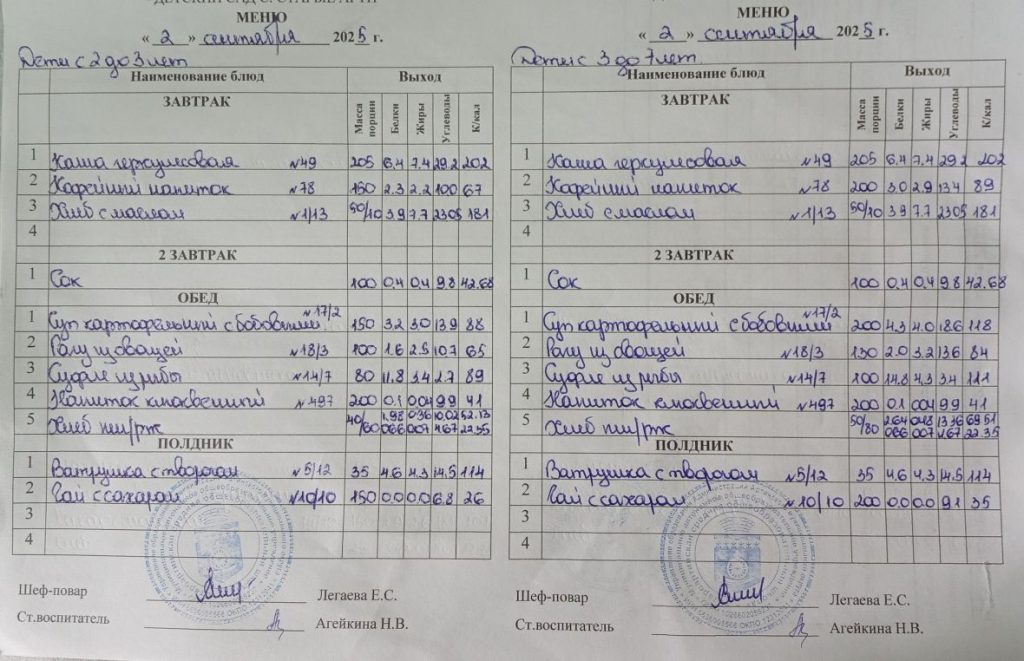 МЕНЮ
« 2 » сентября 2025 г.
Дети с 2 до 3 лет
Наименование блюд Выход
ЗАВТРАК Масса порции Белки Жиры Углеводы К/кал
1 Каша геркулесовая №49 205 6.4 7.4 29.2 202
2 Кофейный напиток №78 150 2.3 2.2 10.0 67
3 Хлеб с маслом №1/13 50/10 3.9 7.7 23.05 181
4
2 ЗАВТРАК
1 Сок 100 0.4 0.4 9.8 42.68
ОБЕД
1 Суп картофельный с бобовыми №17/2 150 3.2 3.0 13.9 88
2 Рагу из овощей №18/3 100 1.6 2.5 10.7 65
3 Суфле из рыбы №14/7 80 11.8 3.4 2.7 89
4 Напиток клюквенный №497 200 0.1 0.04 9.9 41
5 Хлеб пш/рж 40/ 1.98 0.36 10.02 52.13
0.66 0.07 4.67 22.35
ПОЛДНИК
1 Ватрушка с творогом №5/12 35 4.6 4.3 14.5 114
2 Чай с сахаром №10/10 150 0.0 0.0 6.8 26
3
4
Шеф-повар Легаева Е.С.
Ст.воспитатель Агейкина Н.В.
МЕНЮ
« 2 » сентября 2025 г.
Дети с 3 до 7 лет
Наименование блюд Выход
ЗАВТРАК Масса порции Белки Жиры Углеводы К/кал
1 Каша геркулесовая №49 205 6.4 7.4 29.2 202
2 Кофейный напиток №78 200 3.0 2.9 13.4 89
3 Хлеб с маслом №1/13 50/10 3.9 7.7 23.05 181
4
2 ЗАВТРАК
1 Сок 100 0.4 0.4 9.8 42.68
ОБЕД
1 Суп картофельный с бобовыми №17/2 200 4.3 4.0 18.6 118
2 Рагу из овощей №18/3 130 2.0 3.2 13.6 84
3 Суфле из рыбы №14/7 100 14.8 4.3 3.4 111
4 Напиток клюквенный №497 200 0.1 0.04 9.9 41
5 Хлеб пш/рж 50/ 2.64 0.48 13.36 69.51
0.66 0.07 4.67 22.35
ПОЛДНИК
1 Ватрушка с творогом №5/12 35 4.6 4.3 14.5 114
2 Чай с сахаром №10/10 200 0.0 0.0 9.1 35
3
4
Шеф-повар Легаева Е.С.
Ст.воспитатель Агейкина Н.В.